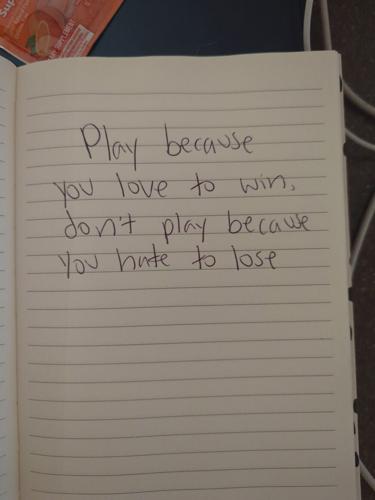 Play because
you love to win,
don't play because
you hate to lose